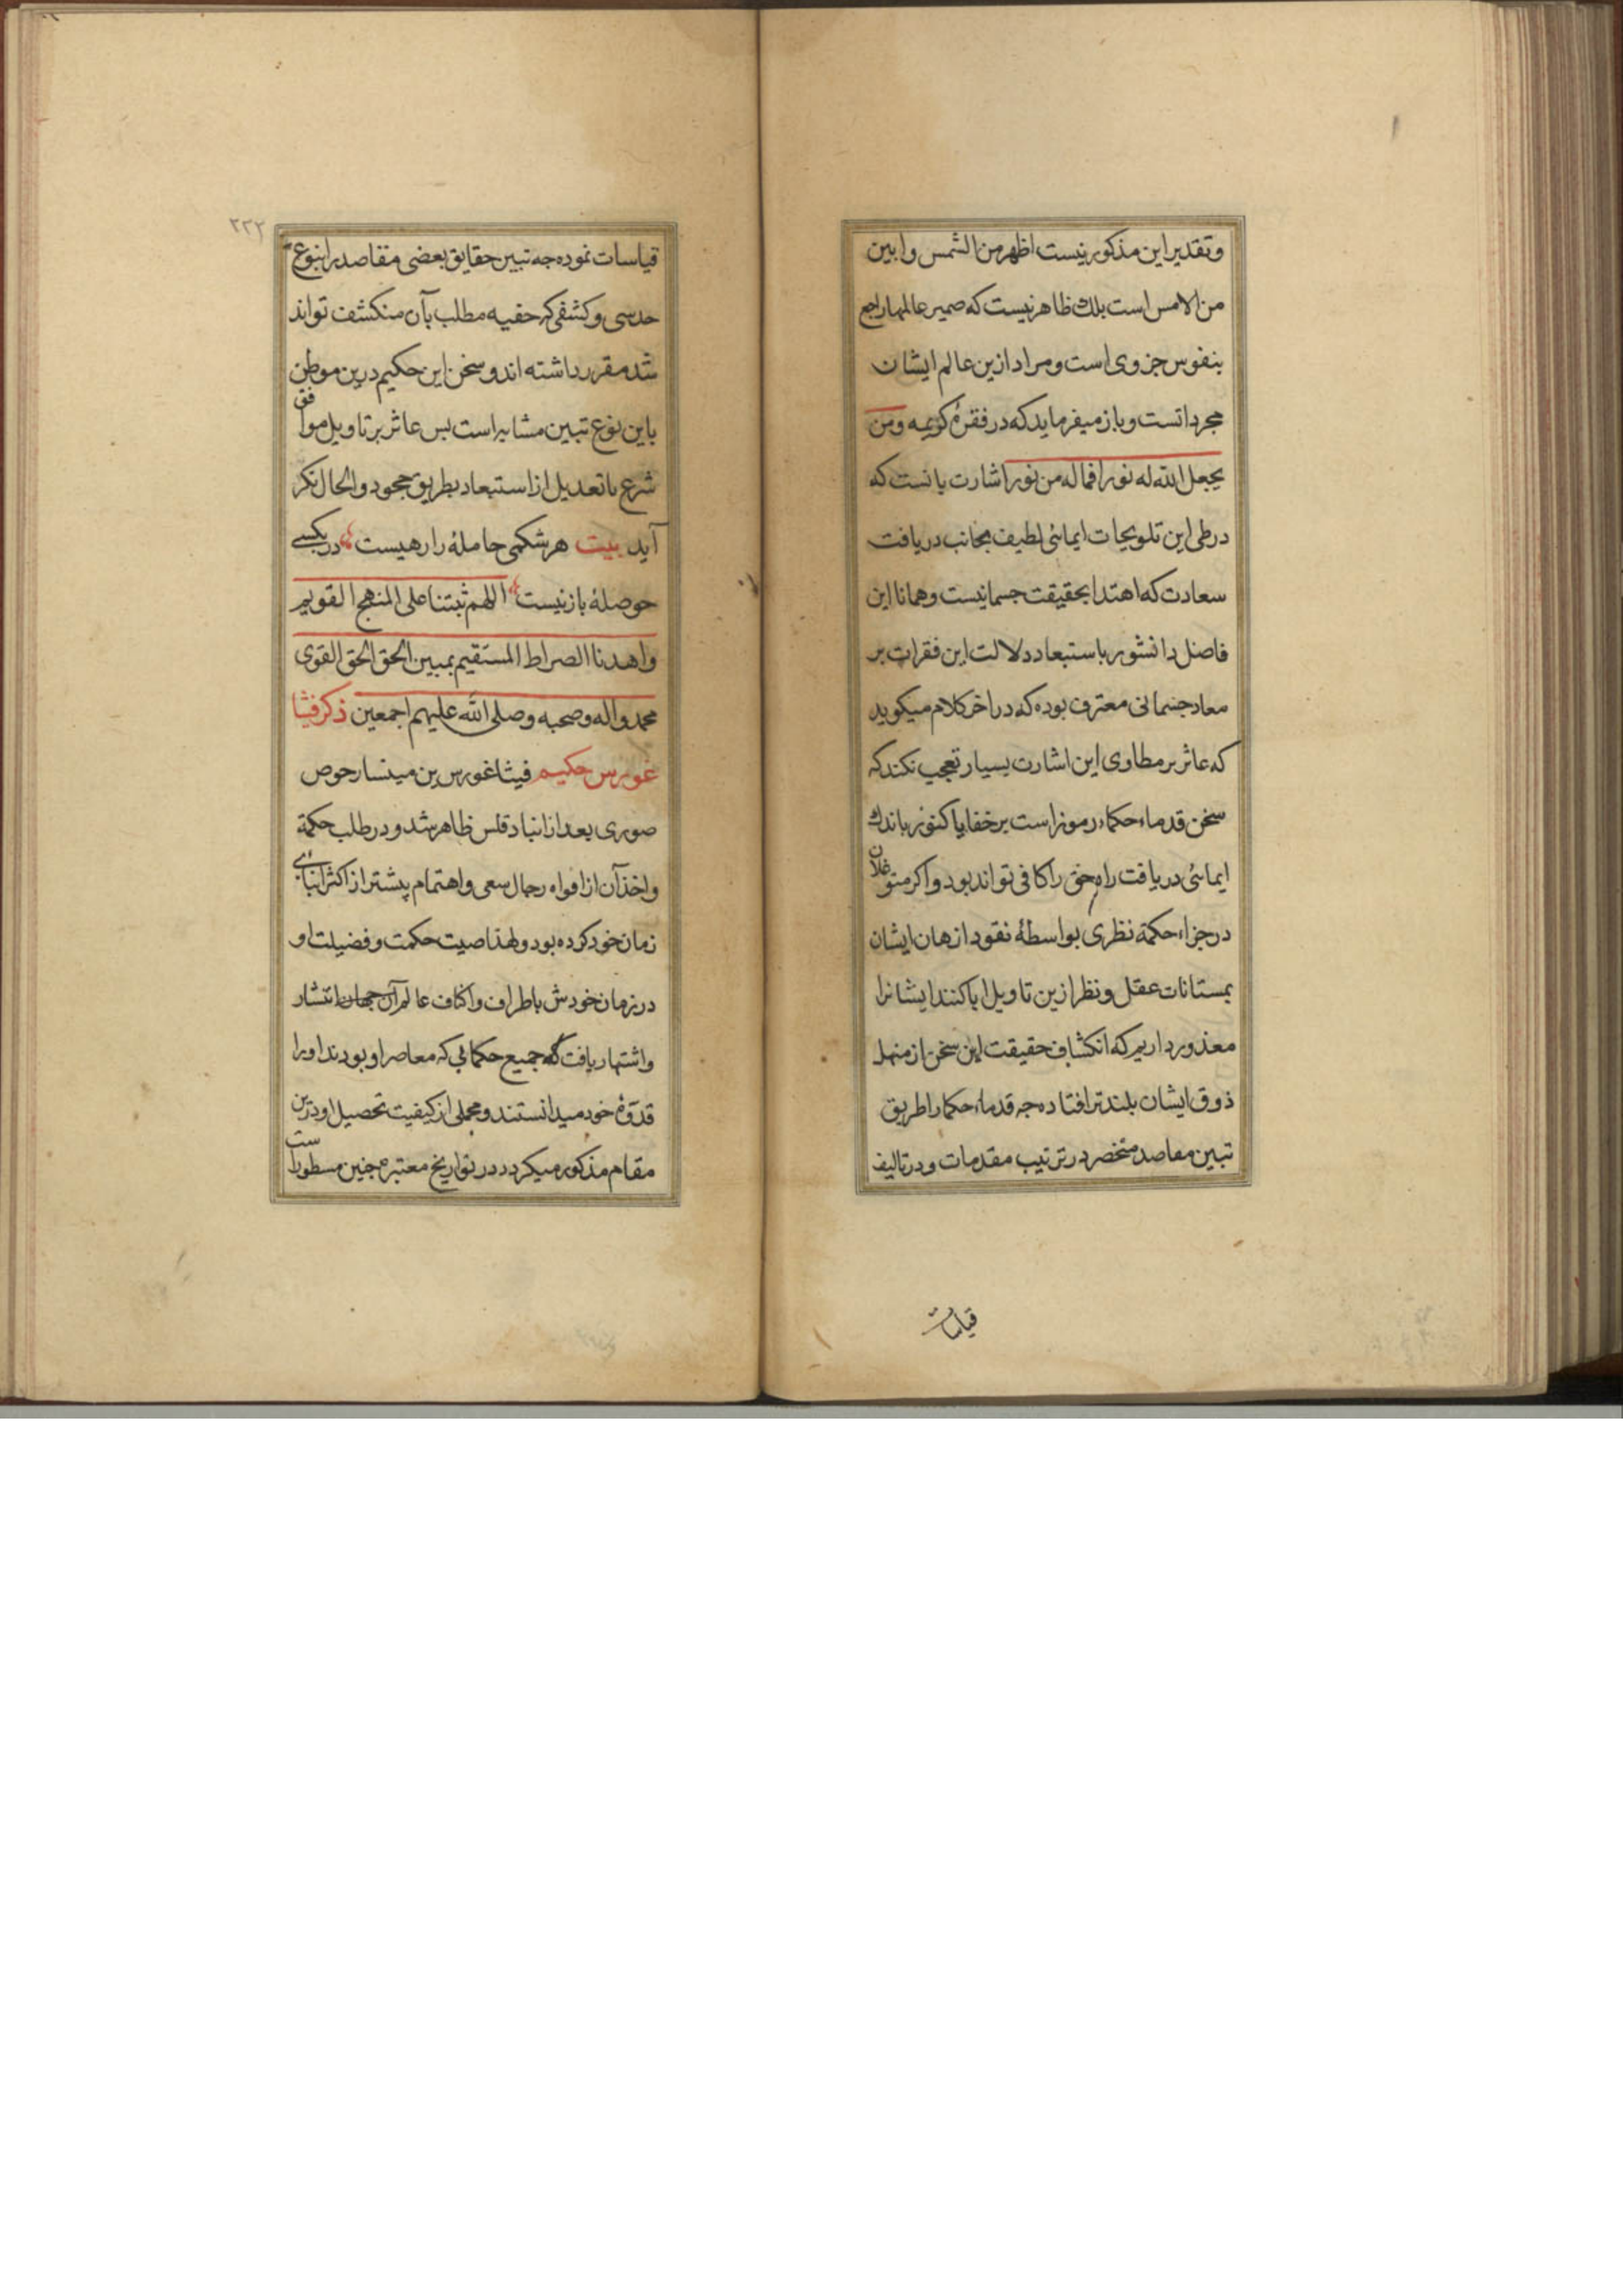 وتقدیر این مذکور نیست اظهر من الشمس وابین
من الامس است بلک ظاهر نیست که ضمیر عالمها راجع
بنفوس جزوی است و مراد ازین عالم ایشان
مجرداتست و باز میفرماید که در فقرهٔ کریمه ومن
یجعل الله له نورا فما له من نور اشارت بانست که
در طی این تلویحات ایمائی لطیف بجانب دریافت
سعادت که اهتدا بحقیقت جسمانیست و همانا این
فاضل دانشور باستبعاد دلالت این فقرات بر
معاد جسمانی معترف بوده که در اخر کلام میکوید
که عاثر بر مطاوی این اشارت بسیار تعجب نکند که
سخن قدماء حکماء رموز است بر خفایا کنوز باندك
ایمائی دریافت راه حق را کافی تواند بود و اکر متوغلان
در جزاء حکمة نظری بواسطهٔ نقود اذهان ایشان
بمستانات عقل و نظر ازین تاویل ابا کنند ایشانرا
معذور داریم که انکشاف حقیقت این سخن از منهل
ذوق ایشان بلندتر افتاده جه قدماء حکما را طریق
تبین مقاصد منحصر در ترتیب مقدمات و در تالیف
قیاسات
۲۲۲
قیاسات نموده جه تبین حقایق بعضی مقاصد را بنوع
حدسی و کشفی که حقیه مطلب بآن منکشف تواند
شد مقرر داشته اند و سخن این حکیم درین موطن
باین نوع تبین مشابه است بس عاثر بر تاویل موافق
شرع با تعدیل از استبعاد بطریق جحود و الحال نکر
آید بیت هر شکمی حاملهٔ راز هیست در یکسی
حوصلهٔ باز نیست اللهم ثبتنا علی المنهج القویم
واهدنا الصراط المستقیم بمبین الحق الحق القوی
محمد واله وصحبه وصلی الله علیهم اجمعین ذکر فیثا
غورس حکیم فیثاغورس بن مینسارحوص
صوری بعد از انبادقلس ظاهر شد و در طلب حکمة
واخذ آن از افواه رجال سعی و اهتمام پیشتر از اکثر ابنای
زمان خود کرده بود و لهذا صیت حکمت و فضیلت او
در زمان خودش باطراف واکناف عالم آن جهان انتشار
واشتهار یافت که جمیع حکمایی که معاصر او بودند او را
قدوهٔ خود میدانستند و مجملی از کیفیت تحصیل او درین
مقام مذکور میکردد در تواریخ معتبره جنین مسطور است